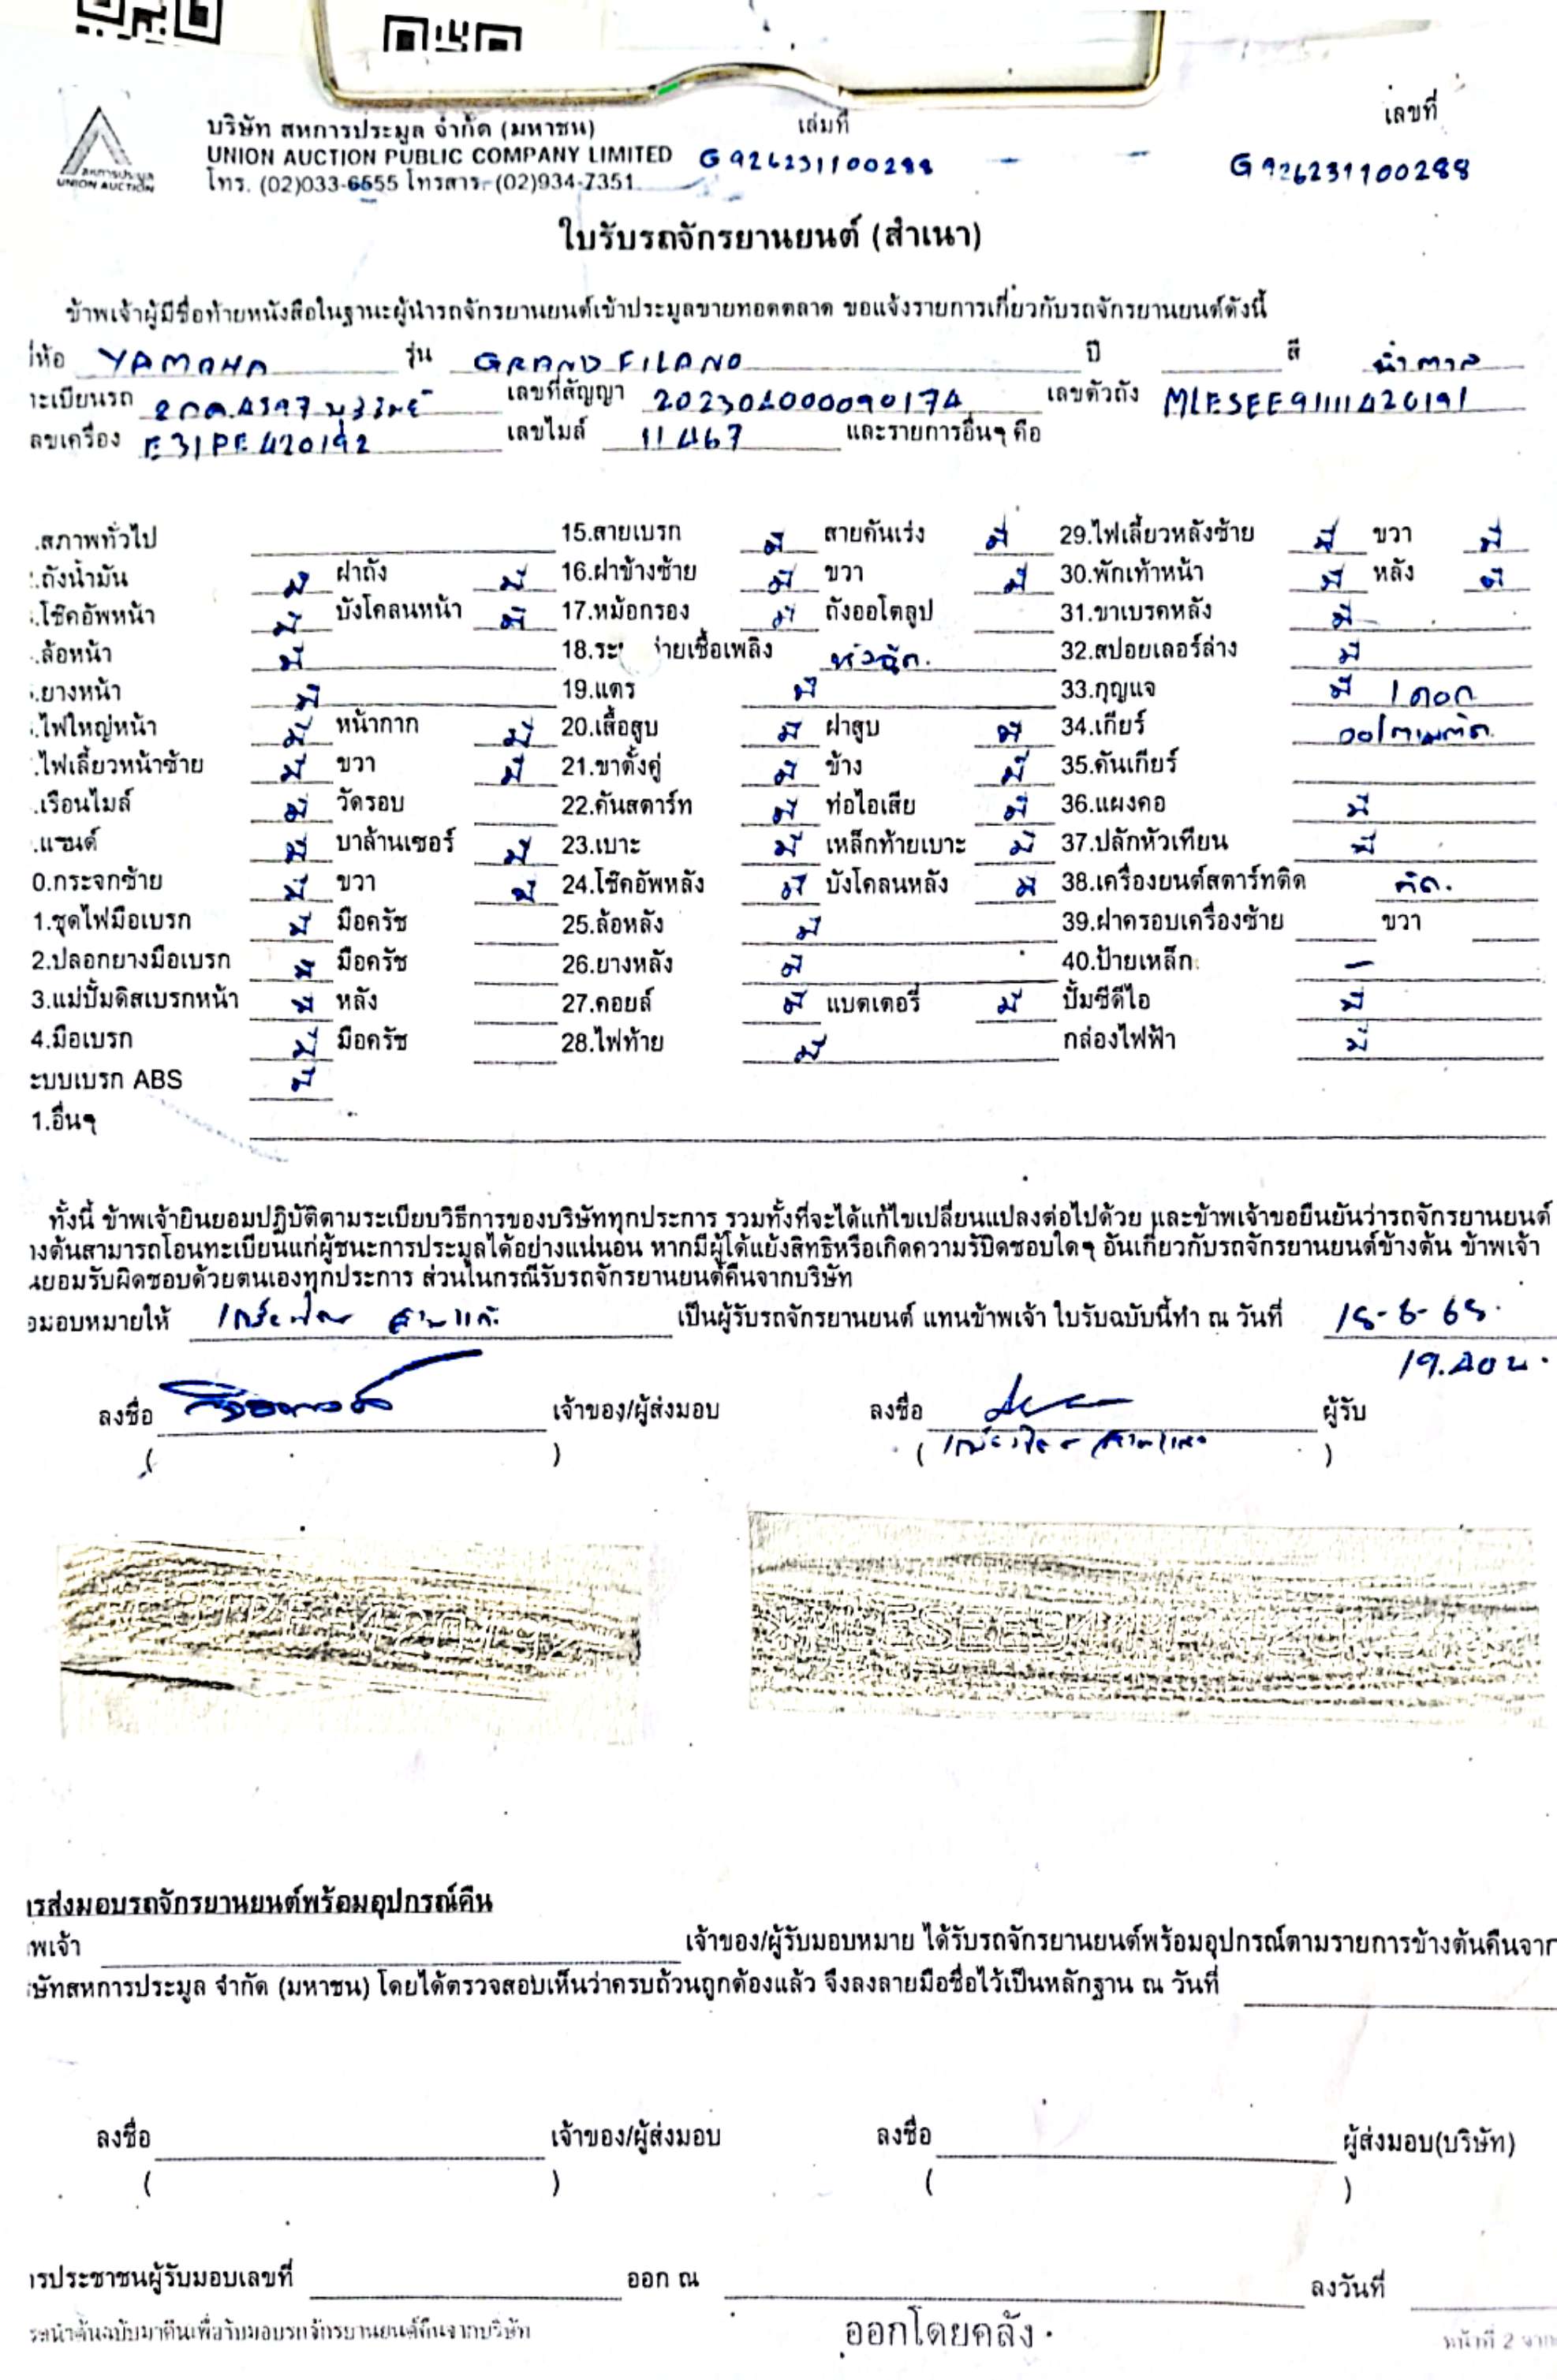 บริษัท สหการประมูล จำกัด (มหาชน) เล่มที่ เลขที่
UNION AUCTION PUBLIC COMPANY LIMITED G926231100288 - - G926231100288
โทร. (02)033-6555 โทรสาร. (02)934-7351
สหการประมูล
UNION AUCTION
ใบรับรถจักรยานยนต์ (สำเนา)
ข้าพเจ้าผู้มีชื่อท้ายหนังสือในฐานะผู้นำรถจักรยานยนต์เข้าประมูลขายทอดตลาด ขอแจ้งรายการเกี่ยวกับรถจักรยานยนต์ดังนี้
ห้อ YAMAHA รุ่น GRAND FILANO ปี สี น้ำตาล
ะเบียนรถ เลขที่สัญญา 202304000090174 เลขตัวถัง MLESEE91111420191
ลขเครื่อง E31PE420192 เลขไมล์ 11467 และรายการอื่นๆ คือ
.สภาพทั่วไป 15.สายเบรก มี สายคันเร่ง มี 29.ไฟเลี้ยวหลังซ้าย มี ขวา มี
.ถังน้ำมัน มี ฝาถัง มี 16.ฝาข้างซ้าย มี ขวา มี 30.พักเท้าหน้า มี หลัง มี
.โช๊คอัพหน้า มี บังโคลนหน้า มี 17.หม้อกรอง มี ถังออโตลูป 31.ขาเบรคหลัง มี
.ล้อหน้า มี 18.ระ ่ายเชื้อเพลิง หัวฉีด. 32.สปอยเลอร์ล่าง มี
.ยางหน้า มี 19.แตร มี 33.กุญแจ มี 1 ดอก
.ไฟใหญ่หน้า มี หน้ากาก มี 20.เสื้อสูบ มี ฝาสูบ มี 34.เกียร์ ออโตเมติก
.ไฟเลี้ยวหน้าซ้าย มี ขวา มี 21.ขาตั้งคู่ มี ข้าง มี 35.คันเกียร์
.เรือนไมล์ มี วัดรอบ 22.คันสตาร์ท มี ท่อไอเสีย มี 36.แผงคอ มี
.แฮนด์ มี บาล้านเซอร์ มี 23.เบาะ มี เหล็กท้ายเบาะ มี 37.ปลักหัวเทียน มี
0.กระจกซ้าย มี ขวา มี 24.โช๊คอัพหลัง มี บังโคลนหลัง มี 38.เครื่องยนต์สตาร์ทติด ติด.
1.ชุดไฟมือเบรก มี มือครัช 25.ล้อหลัง มี 39.ฝาครอบเครื่องซ้าย ขวา
2.ปลอกยางมือเบรก มี มือครัช 26.ยางหลัง มี 40.ป้ายเหล็ก -
3.แม่ปั้มดิสเบรกหน้า มี หลัง 27.คอยล์ มี แบตเตอรี่ มี ปั้มซีดีไอ มี
4.มือเบรก มี มือครัช 28.ไฟท้าย มี กล่องไฟฟ้า มี
ะบบเบรก ABS มี
1.อื่นๆ
ทั้งนี้ ข้าพเจ้ายินยอมปฏิบัติตามระเบียบวิธีการของบริษัททุกประการ รวมทั้งที่จะได้แก้ไขเปลี่ยนแปลงต่อไปด้วย และข้าพเจ้าขอยืนยันว่ารถจักรยานยนต์
างต้นสามารถโอนทะเบียนแก่ผู้ชนะการประมูลได้อย่างแน่นอน หากมีผู้โต้แย้งสิทธิหรือเกิดความรับผิดชอบใดๆ อันเกี่ยวกับรถจักรยานยนต์ข้างต้น ข้าพเจ้า
นยอมรับผิดชอบด้วยตนเองทุกประการ ส่วนในกรณีรับรถจักรยานยนต์คืนจากบริษัท
อมอบหมายให้ เป็นผู้รับรถจักรยานยนต์ แทนข้าพเจ้า ใบรับฉบับนี้ทำ ณ วันที่
ลงชื่อ เจ้าของ/ผู้ส่งมอบ ลงชื่อ ผู้รับ
( ) ( )
E31PE-420192
ารส่งมอบรถจักรยานยนต์พร้อมอุปกรณ์คืน
พเจ้า เจ้าของ/ผู้รับมอบหมาย ได้รับรถจักรยานยนต์พร้อมอุปกรณ์ตามรายการข้างต้นคืนจาก
ษัทสหการประมูล จำกัด (มหาชน) โดยได้ตรวจสอบเห็นว่าครบถ้วนถูกต้องแล้ว จึงลงลายมือชื่อไว้เป็นหลักฐาน ณ วันที่
ลงชื่อ เจ้าของ/ผู้ส่งมอบ ลงชื่อ ผู้ส่งมอบ(บริษัท)
( ) ( )
ารประชาชนผู้รับมอบเลขที่ ออก ณ ลงวันที่
ะนำต้นฉบับมาคืนเพื่อรับมอบรถจักรยานยนต์คืนจากบริษัท ออกโดยคลัง หน้าที่ 2 จาก